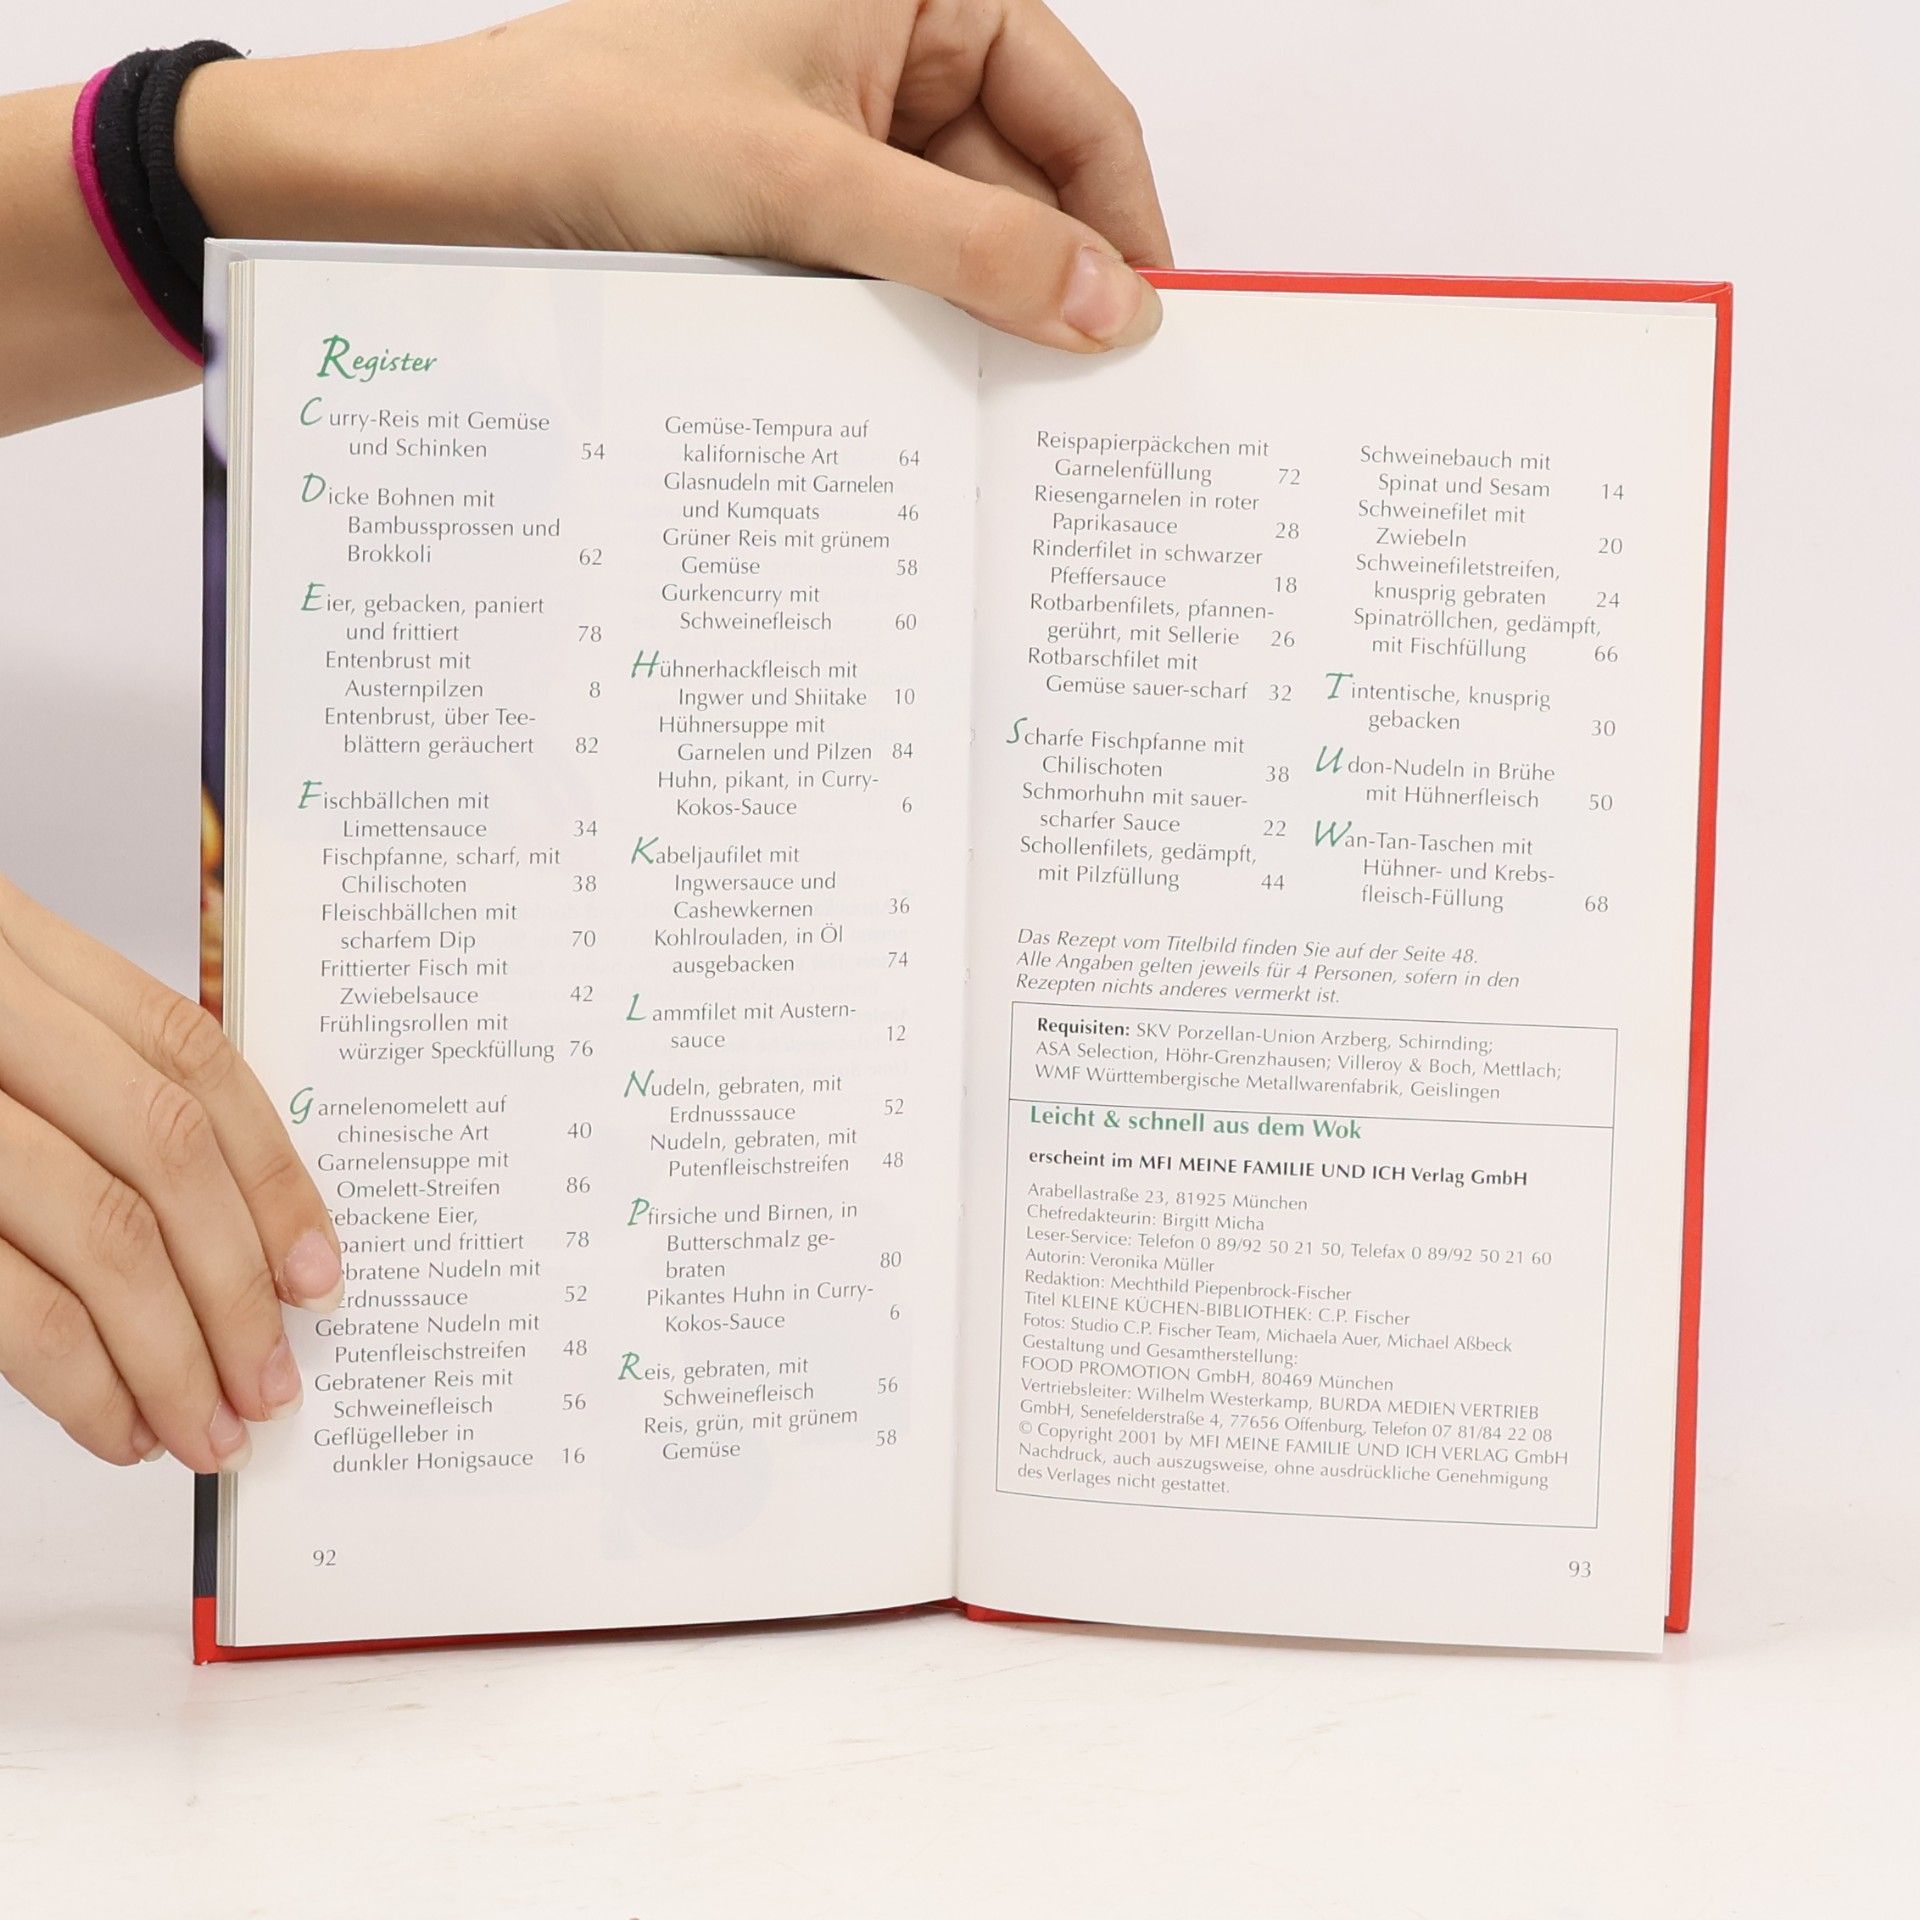 Register
Curry-Reis mit Gemüse
und Schinken 54
Dicke Bohnen mit
Bambussprossen und
Brokkoli 62
Eier, gebacken, paniert
und frittiert 78
Entenbrust mit
Austernpilzen 8
Entenbrust, über Tee-
blättern geräuchert 82
Fischbällchen mit
Limettensauce 34
Fischpfanne, scharf, mit
Chilischoten 38
Fleischbällchen mit
scharfem Dip 70
Frittierter Fisch mit
Zwiebelsauce 42
Frühlingsrollen mit
würziger Speckfüllung 76
Garnelenomelett auf
chinesische Art 40
Garnelensuppe mit
Omelett-Streifen 86
Gebackene Eier,
paniert und frittiert 78
Gebratene Nudeln mit
Erdnusssauce 52
Gebratene Nudeln mit
Putenfleischstreifen 48
Gebratener Reis mit
Schweinefleisch 56
Geflügelleber in
dunkler Honigsauce 16
Gemüse-Tempura auf
kalifornische Art 64
Glasnudeln mit Garnelen
und Kumquats 46
Grüner Reis mit grünem
Gemüse 58
Gurkencurry mit
Schweinefleisch 60
Hühnerhackfleisch mit
Ingwer und Shiitake 10
Hühnersuppe mit
Garnelen und Pilzen 84
Huhn, pikant, in Curry-
Kokos-Sauce 6
Kabeljaufilet mit
Ingwersauce und
Cashewkernen 36
Kohlrouladen, in Öl
ausgebacken 74
Lammfilet mit Austern-
sauce 12
Nudeln, gebraten, mit
Erdnusssauce 52
Nudeln, gebraten, mit
Putenfleischstreifen 48
Pfirsiche und Birnen, in
Butterschmalz ge-
braten 80
Pikantes Huhn in Curry-
Kokos-Sauce 6
Reis, gebraten, mit
Schweinefleisch 56
Reis, grün, mit grünem
Gemüse 58
92
Reispapierpäckchen mit
Garnelenfüllung 72
Riesengarnelen in roter
Paprikasauce 28
Rinderfilet in schwarzer
Pfeffersauce 18
Rotbarbenfilets, pfannen-
gerührt, mit Sellerie 26
Rotbarschfilet mit
Gemüse sauer-scharf 32
Scharfe Fischpfanne mit
Chilischoten 38
Schmorhuhn mit sauer-
scharfer Sauce 22
Schollenfilets, gedämpft,
mit Pilzfüllung 44
Schweinebauch mit
Spinat und Sesam 14
Schweinefilet mit
Zwiebeln 20
Schweinefiletstreifen,
knusprig gebraten 24
Spinatröllchen, gedämpft,
mit Fischfüllung 66
Tintentische, knusprig
gebacken 30
Udon-Nudeln in Brühe
mit Hühnerfleisch 50
Wan-Tan-Taschen mit
Hühner- und Krebs-
fleisch-Füllung 68
Das Rezept vom Titelbild finden Sie auf der Seite 48.
Alle Angaben gelten jeweils für 4 Personen, sofern in den
Rezepten nichts anderes vermerkt ist.
Requisiten: SKV Porzellan-Union Arzberg, Schirnding;
ASA Selection, Höhr-Grenzhausen; Villeroy & Boch, Mettlach;
WMF Württembergische Metallwarenfabrik, Geislingen
Leicht & schnell aus dem Wok
erscheint im MFI MEINE FAMILIE UND ICH Verlag GmbH
Arabellastraße 23, 81925 München
Chefredakteurin: Birgitt Micha
Leser-Service: Telefon 0 89/92 50 21 50, Telefax 0 89/92 50 21 60
Autorin: Veronika Müller
Redaktion: Mechthild Piepenbrock-Fischer
Titel KLEINE KÜCHEN-BIBLIOTHEK: C.P. Fischer
Fotos: Studio C.P. Fischer Team, Michaela Auer, Michael Aßbeck
Gestaltung und Gesamtherstellung:
FOOD PROMOTION GmbH, 80469 München
Vertriebsleiter: Wilhelm Westerkamp, BURDA MEDIEN VERTRIEB
GmbH, Senefelderstraße 4, 77656 Offenburg, Telefon 07 81/84 22 08
© Copyright 2001 by MFI MEINE FAMILIE UND ICH VERLAG GmbH
Nachdruck, auch auszugsweise, ohne ausdrückliche Genehmigung
des Verlages nicht gestattet.
93